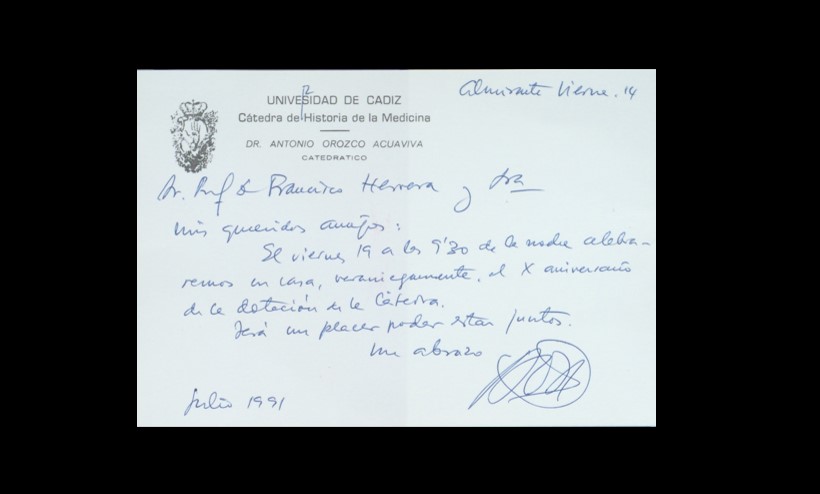 Almirante Vierna. 14
UNIVESIDAD DE CADIZ
R
Cátedra de Historia de la Medicina
DR. ANTONIO OROZCO ACUAVIVA
CATEDRATICO
Sr. Prof. D. Francisco Herrera y Sra
Mis queridos amigos:
El viernes 19 a las 9'30 de la noche celebra-
remos en casa, veraniegamente, el X aniversario
de la dotación de la Cátedra.
Será un placer poder estar juntos.
Un abrazo
Julio 1991